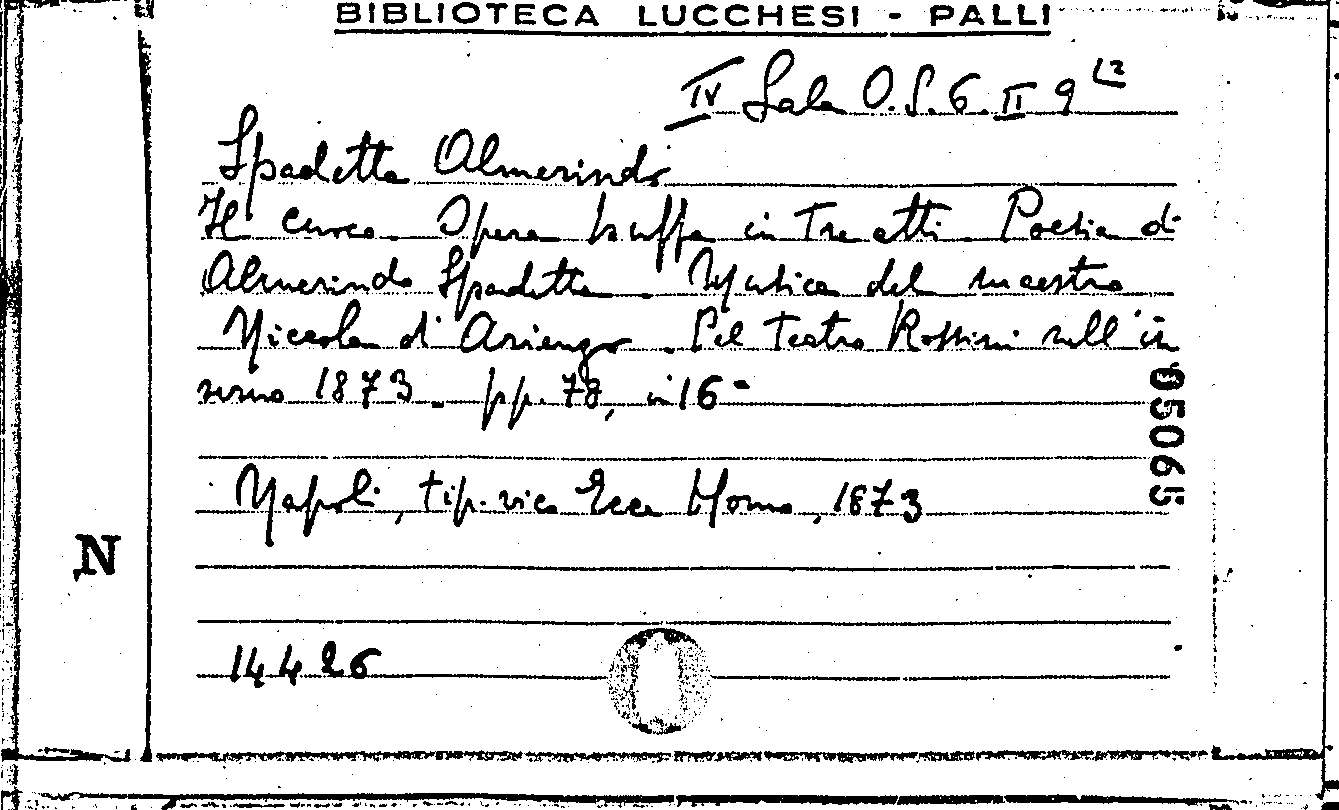 BIBLIOTECA LUCCHESI - PALLI
IV Sala O.S.6.II 9 12
Spadetta Almerindo
Il cuoco. Opera buffa in Tre atti. Poesia di
Almerindo Spadetta. Musica del maestro
Niccola d'Arienzo. Pel Teatro Rossini nell'in
verno 1873. pp. 78, in 16°
Napoli, tip. vico Ecce Homo, 1873
N
14426
05065